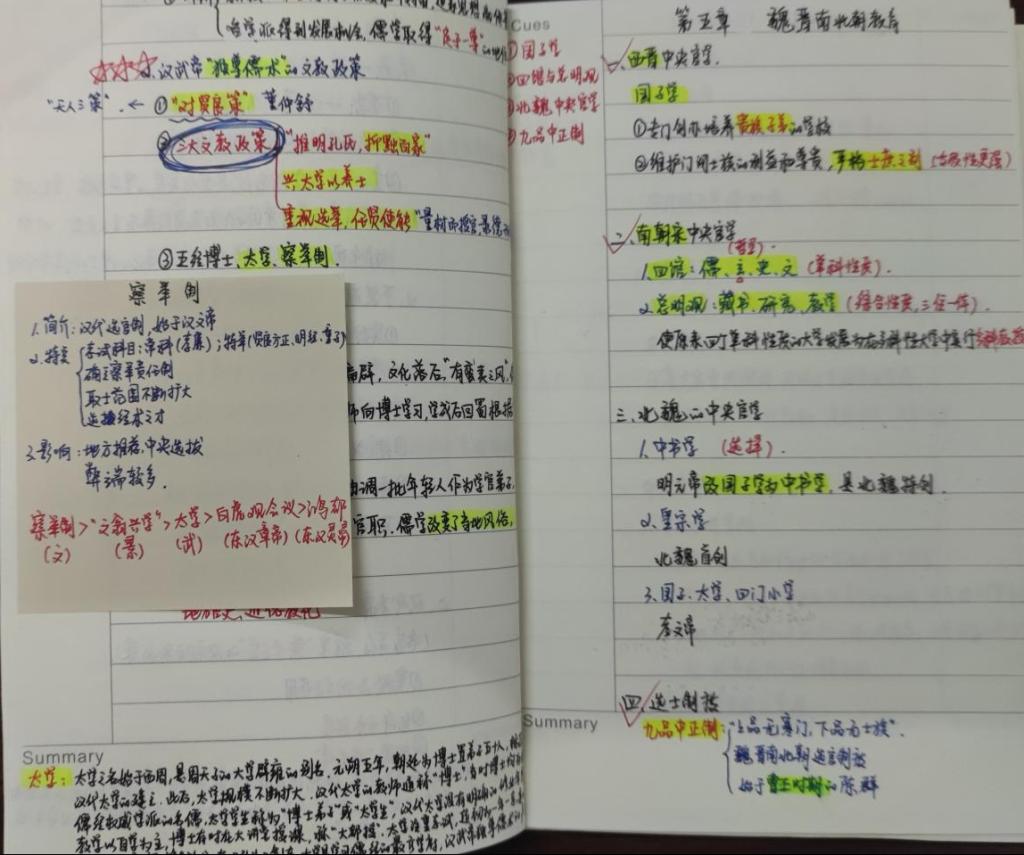 哲学派得到发展机会,儒学取得"定于一尊"的地位
汉武帝"独尊儒术"的文教政策
"天人三策". ← ①"对贤良策" 董仲舒
②三大文教政策 "推明孔氏,抑黜百家"
兴太学以养士
重视选举,任贤使能 "量材而授官,录德
③五经博士、太学、察举制.
察举制
1.简介:汉代选官制,始于汉文帝
2.特点 考试科目:常科(孝廉);特举(贤良方正、明经、童子)
确立察举责任制
取士范围不断扩大
选拔经术之才
3.影响:地方推荐,中央选拔
弊端较多.
察举制>"文翁兴学">太学>白虎观会议>鸿都
(文) (景) (武) (东汉章帝) (东汉灵帝)
文化落后,"有蛮夷之风".
向博士学习,学成后回蜀
调一批年轻人作为学官弟子,
官职.儒学改变了当地风俗,
Summary
太学:太学之名始于西周,是周天子的大学辟雍的别名.元朔五年,朝廷为博士置弟子五十人,
汉代太学的建立.此后,太学规模不断扩大.汉代太学的教师通称"博士",
儒经权威学派的名儒,太学学生称为"博士弟子"或"太学生",汉代太学没有明确的
教学以自学为主,博士有时在大讲堂授课,称"大都授".太学注重考试,
Cues
①国子学
②四馆与总明观
③北魏中央官学
④九品中正制
第五章 魏晋南北朝教育
一、西晋中央官学.
国子学
①专门创办培养贵族子弟的学校
②维护门阀士族的利益和尊贵,严格士庶之别(等级性更强)
二、南朝宋中央官学
(哲学)
1.四馆:儒、玄、史、文(单科性质).
2.总明观:藏书、研究、教学(综合性质,三位一体)
使原来四个单科性质的大学发展为在多科性大学中实行分科教授
三、北魏的中央官学
1.中书学 (选择).
明元帝改国子学为中书学,是北魏特创.
2.皇宗学
北魏首创
3.国子、太学、四门小学
孝文帝
四、选士制度
Summary
九品中正制:"上品无寒门,下品无士族".
魏晋南北朝选官制度
始于曹丕时期的陈群